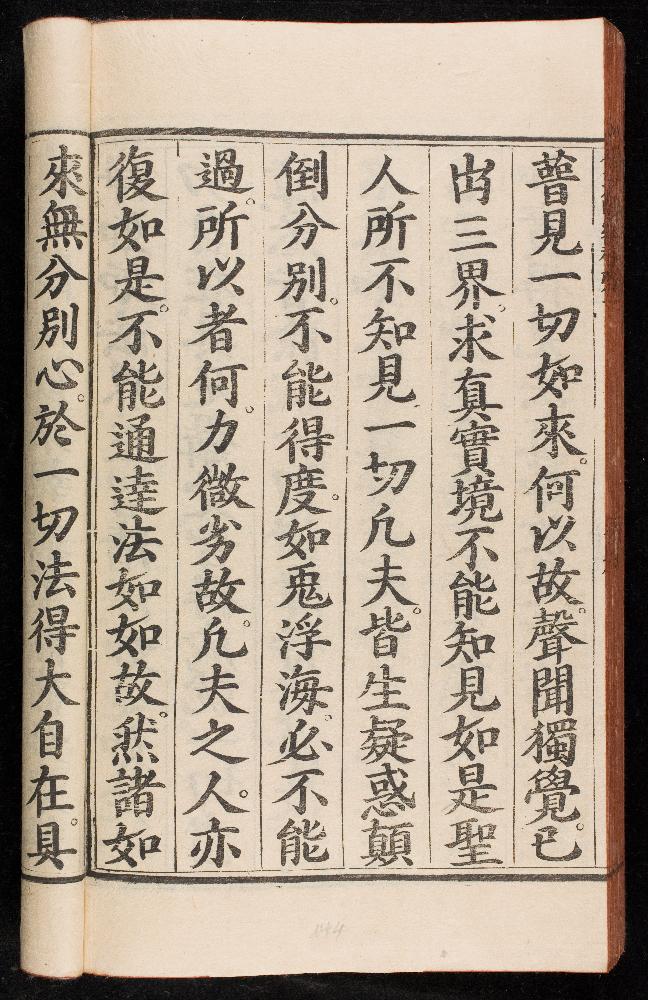 普見一切如來。何以故。聲聞獨覺。已
出三界。求真實境不能知見如是聖
人所不知見一切凡夫。皆生疑惑顛
倒分別。不能得度。如兎浮海。必不能
過。所以者何。力微劣故。凡夫之人。亦
復如是。不能通達法如如故。然諸如
來無分別心。於一切法得大自在。具
144